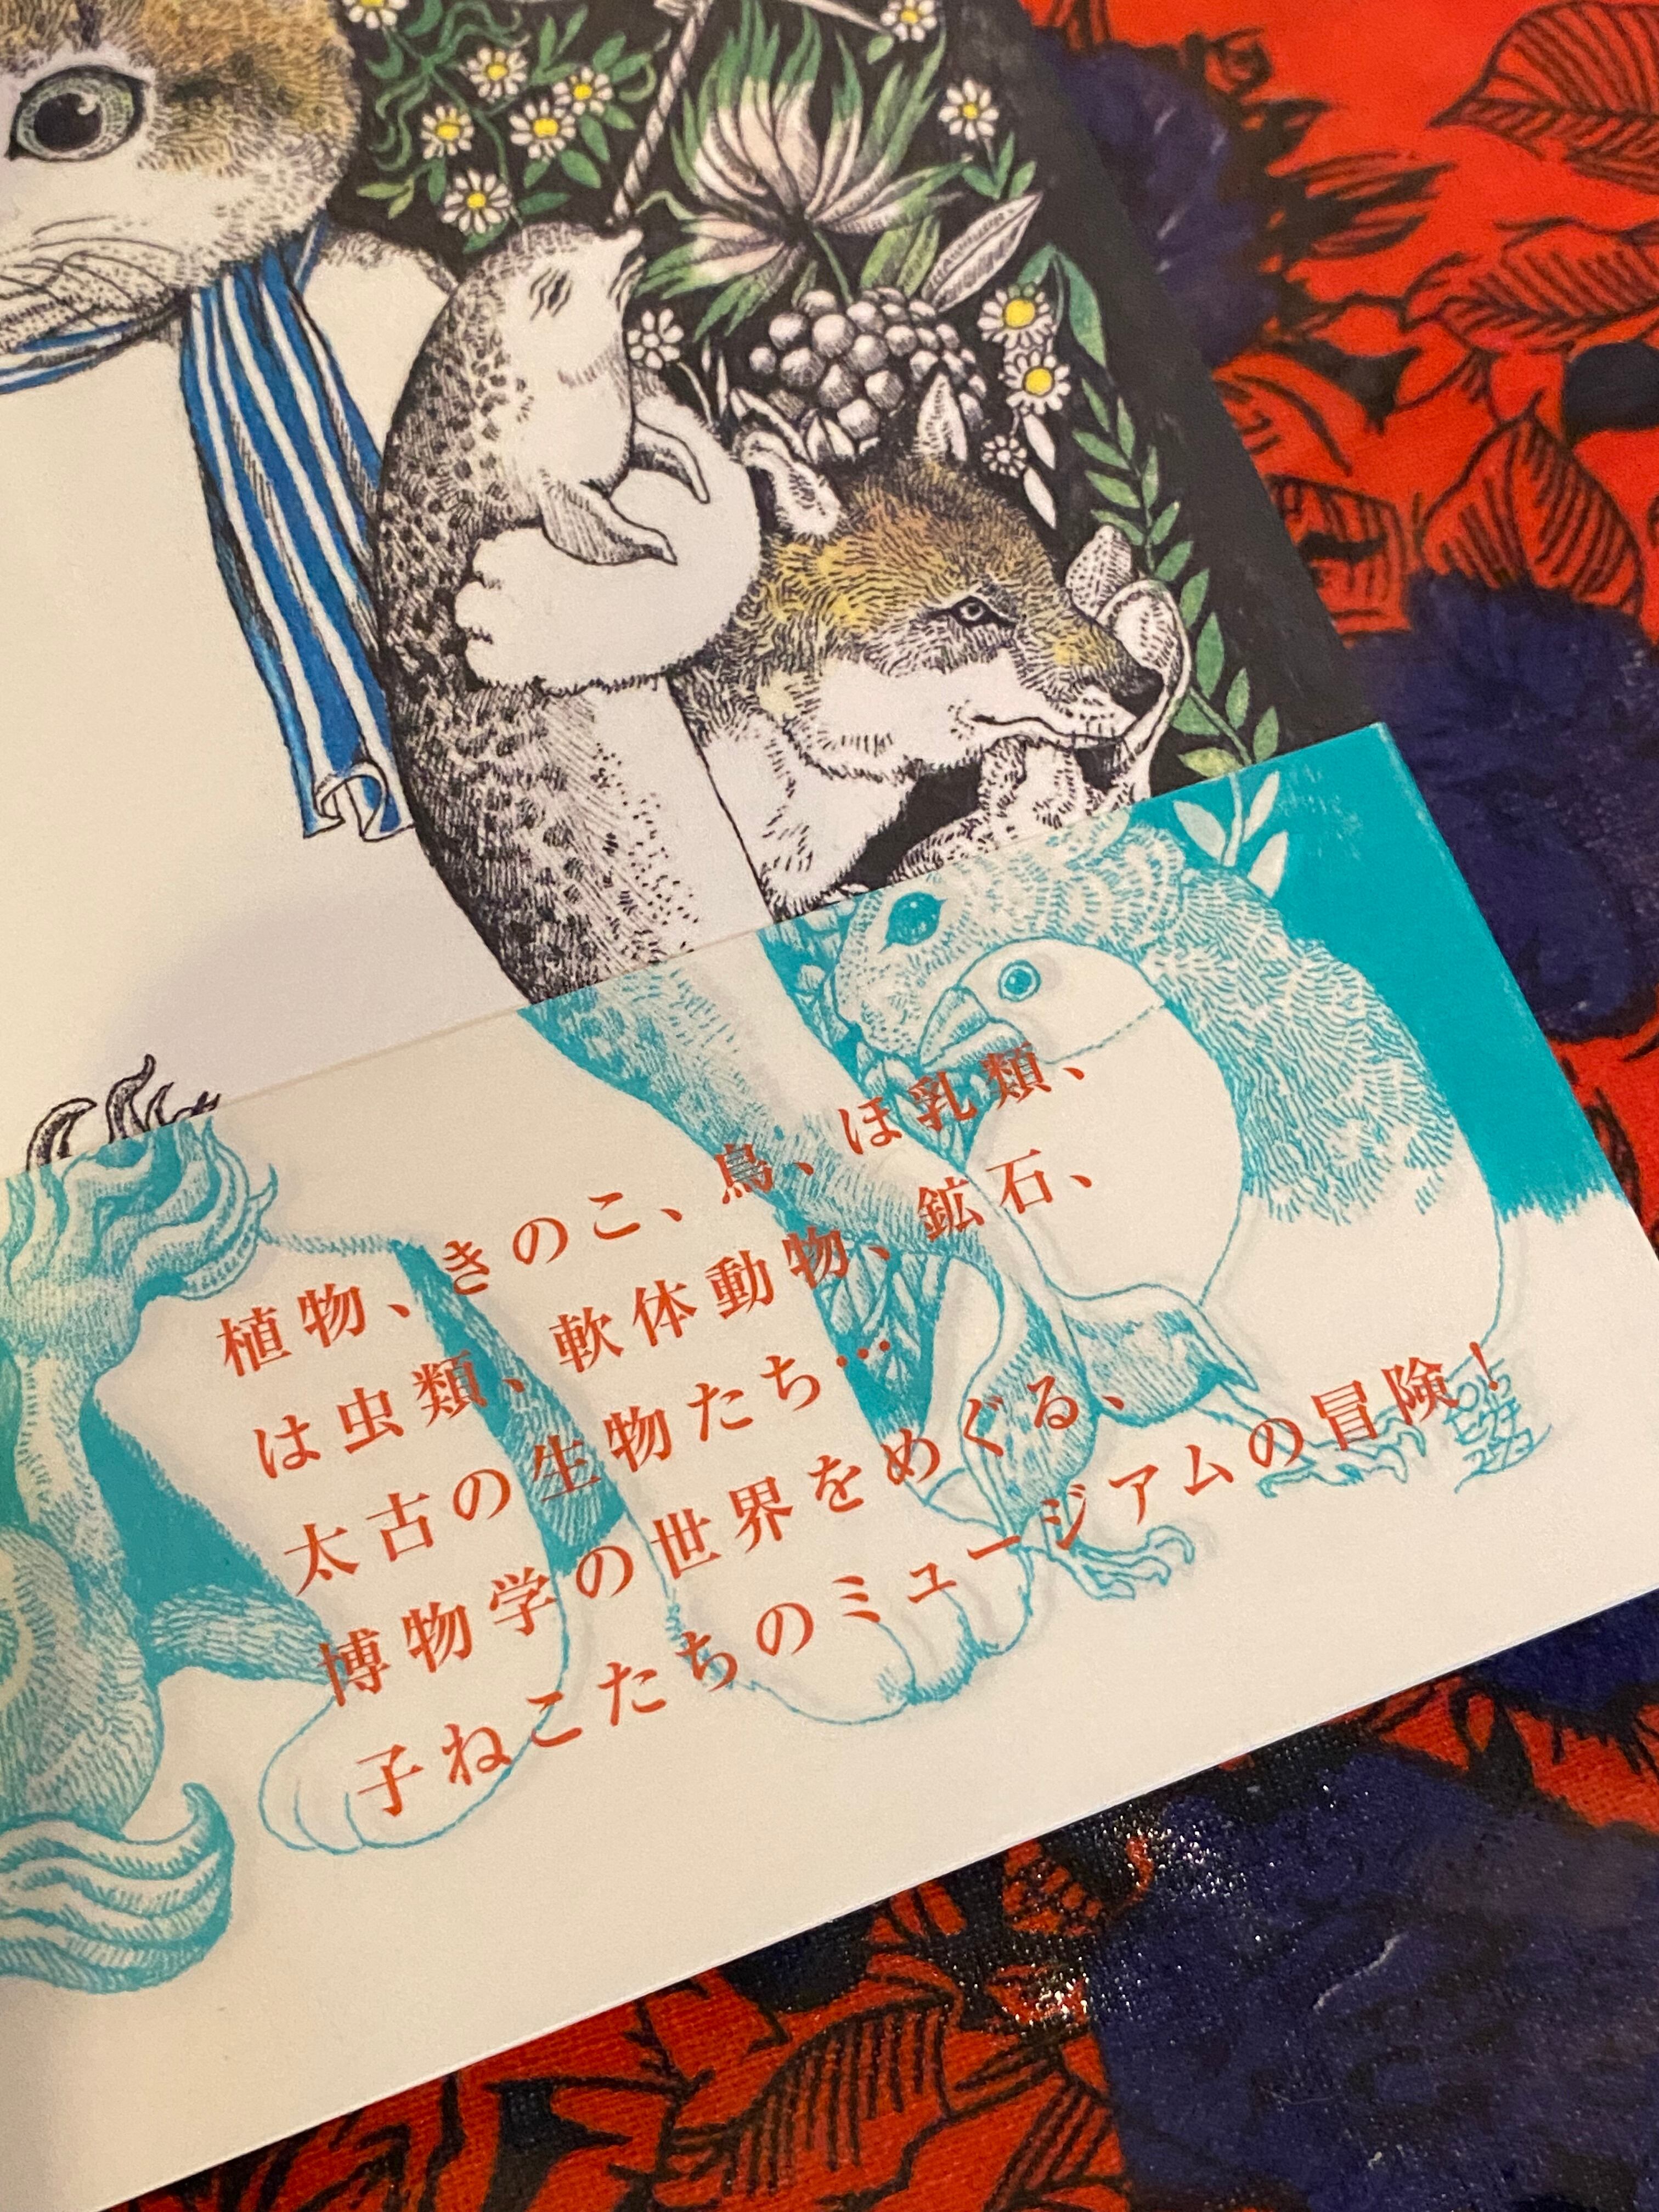 植物、きのこ、鳥、ほ乳類、
は虫類、軟体動物、鉱石、
太古の生物たち…
博物学の世界をめぐる、
子ねこたちのミュージアムの冒険！